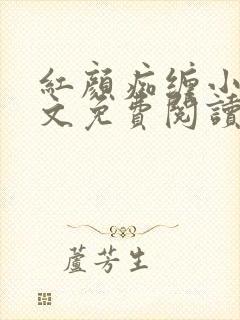 紅顏痴纏小
文免費閱讀
蘆芳生